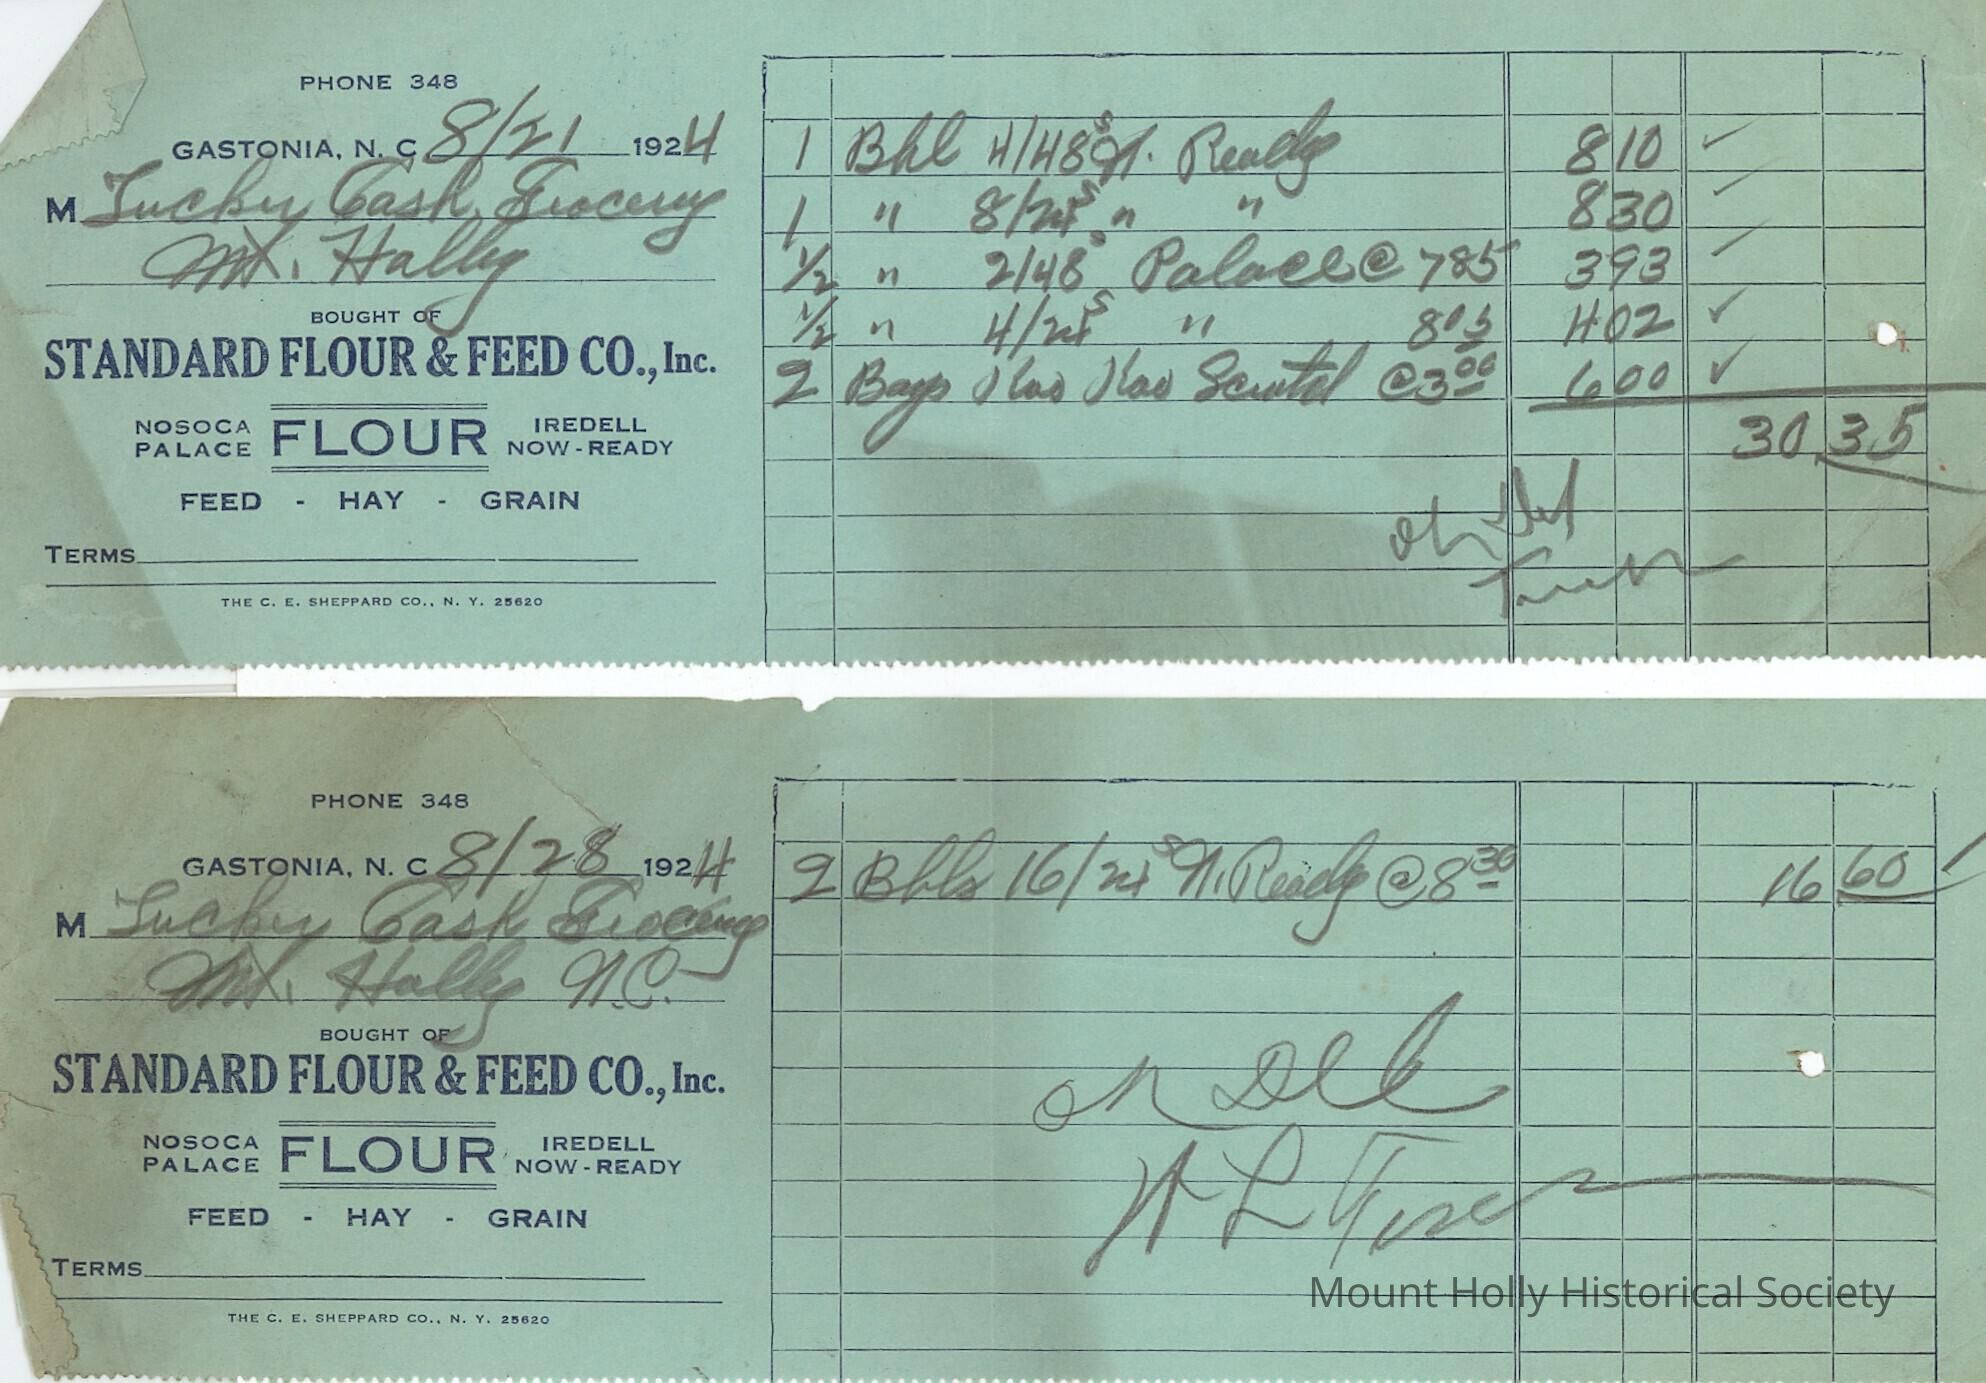 PHONE 348
GASTONIA, N. C 8/21 1924
M Tucker Cash Grocery
Mt. Holly
BOUGHT OF
STANDARD FLOUR & FEED CO., Inc.
NOSOCA PALACE FLOUR IREDELL NOW-READY
FEED - HAY - GRAIN
TERMS
THE C. E. SHEPPARD CO., N. Y. 25620
1 Bbl 4/48s N. Ready 810
1 " 8/24s " " 830
1/2 " 2/48s Palace @ 785 393
1/2 " 4/24s " 805 402
2 Bags Kao Kao @ 3 00 600
30 35
PHONE 348
GASTONIA, N. C 8/28 1924
M Tucker Cash Grocery
Mt. Holly N.C.
BOUGHT OF
STANDARD FLOUR & FEED CO., Inc.
NOSOCA PALACE FLOUR IREDELL NOW-READY
FEED - HAY - GRAIN
TERMS
THE C. E. SHEPPARD CO., N. Y. 25620
2 Bbls 16/24s N. Ready @ 8 30 16 60
Mount Holly Historical Society